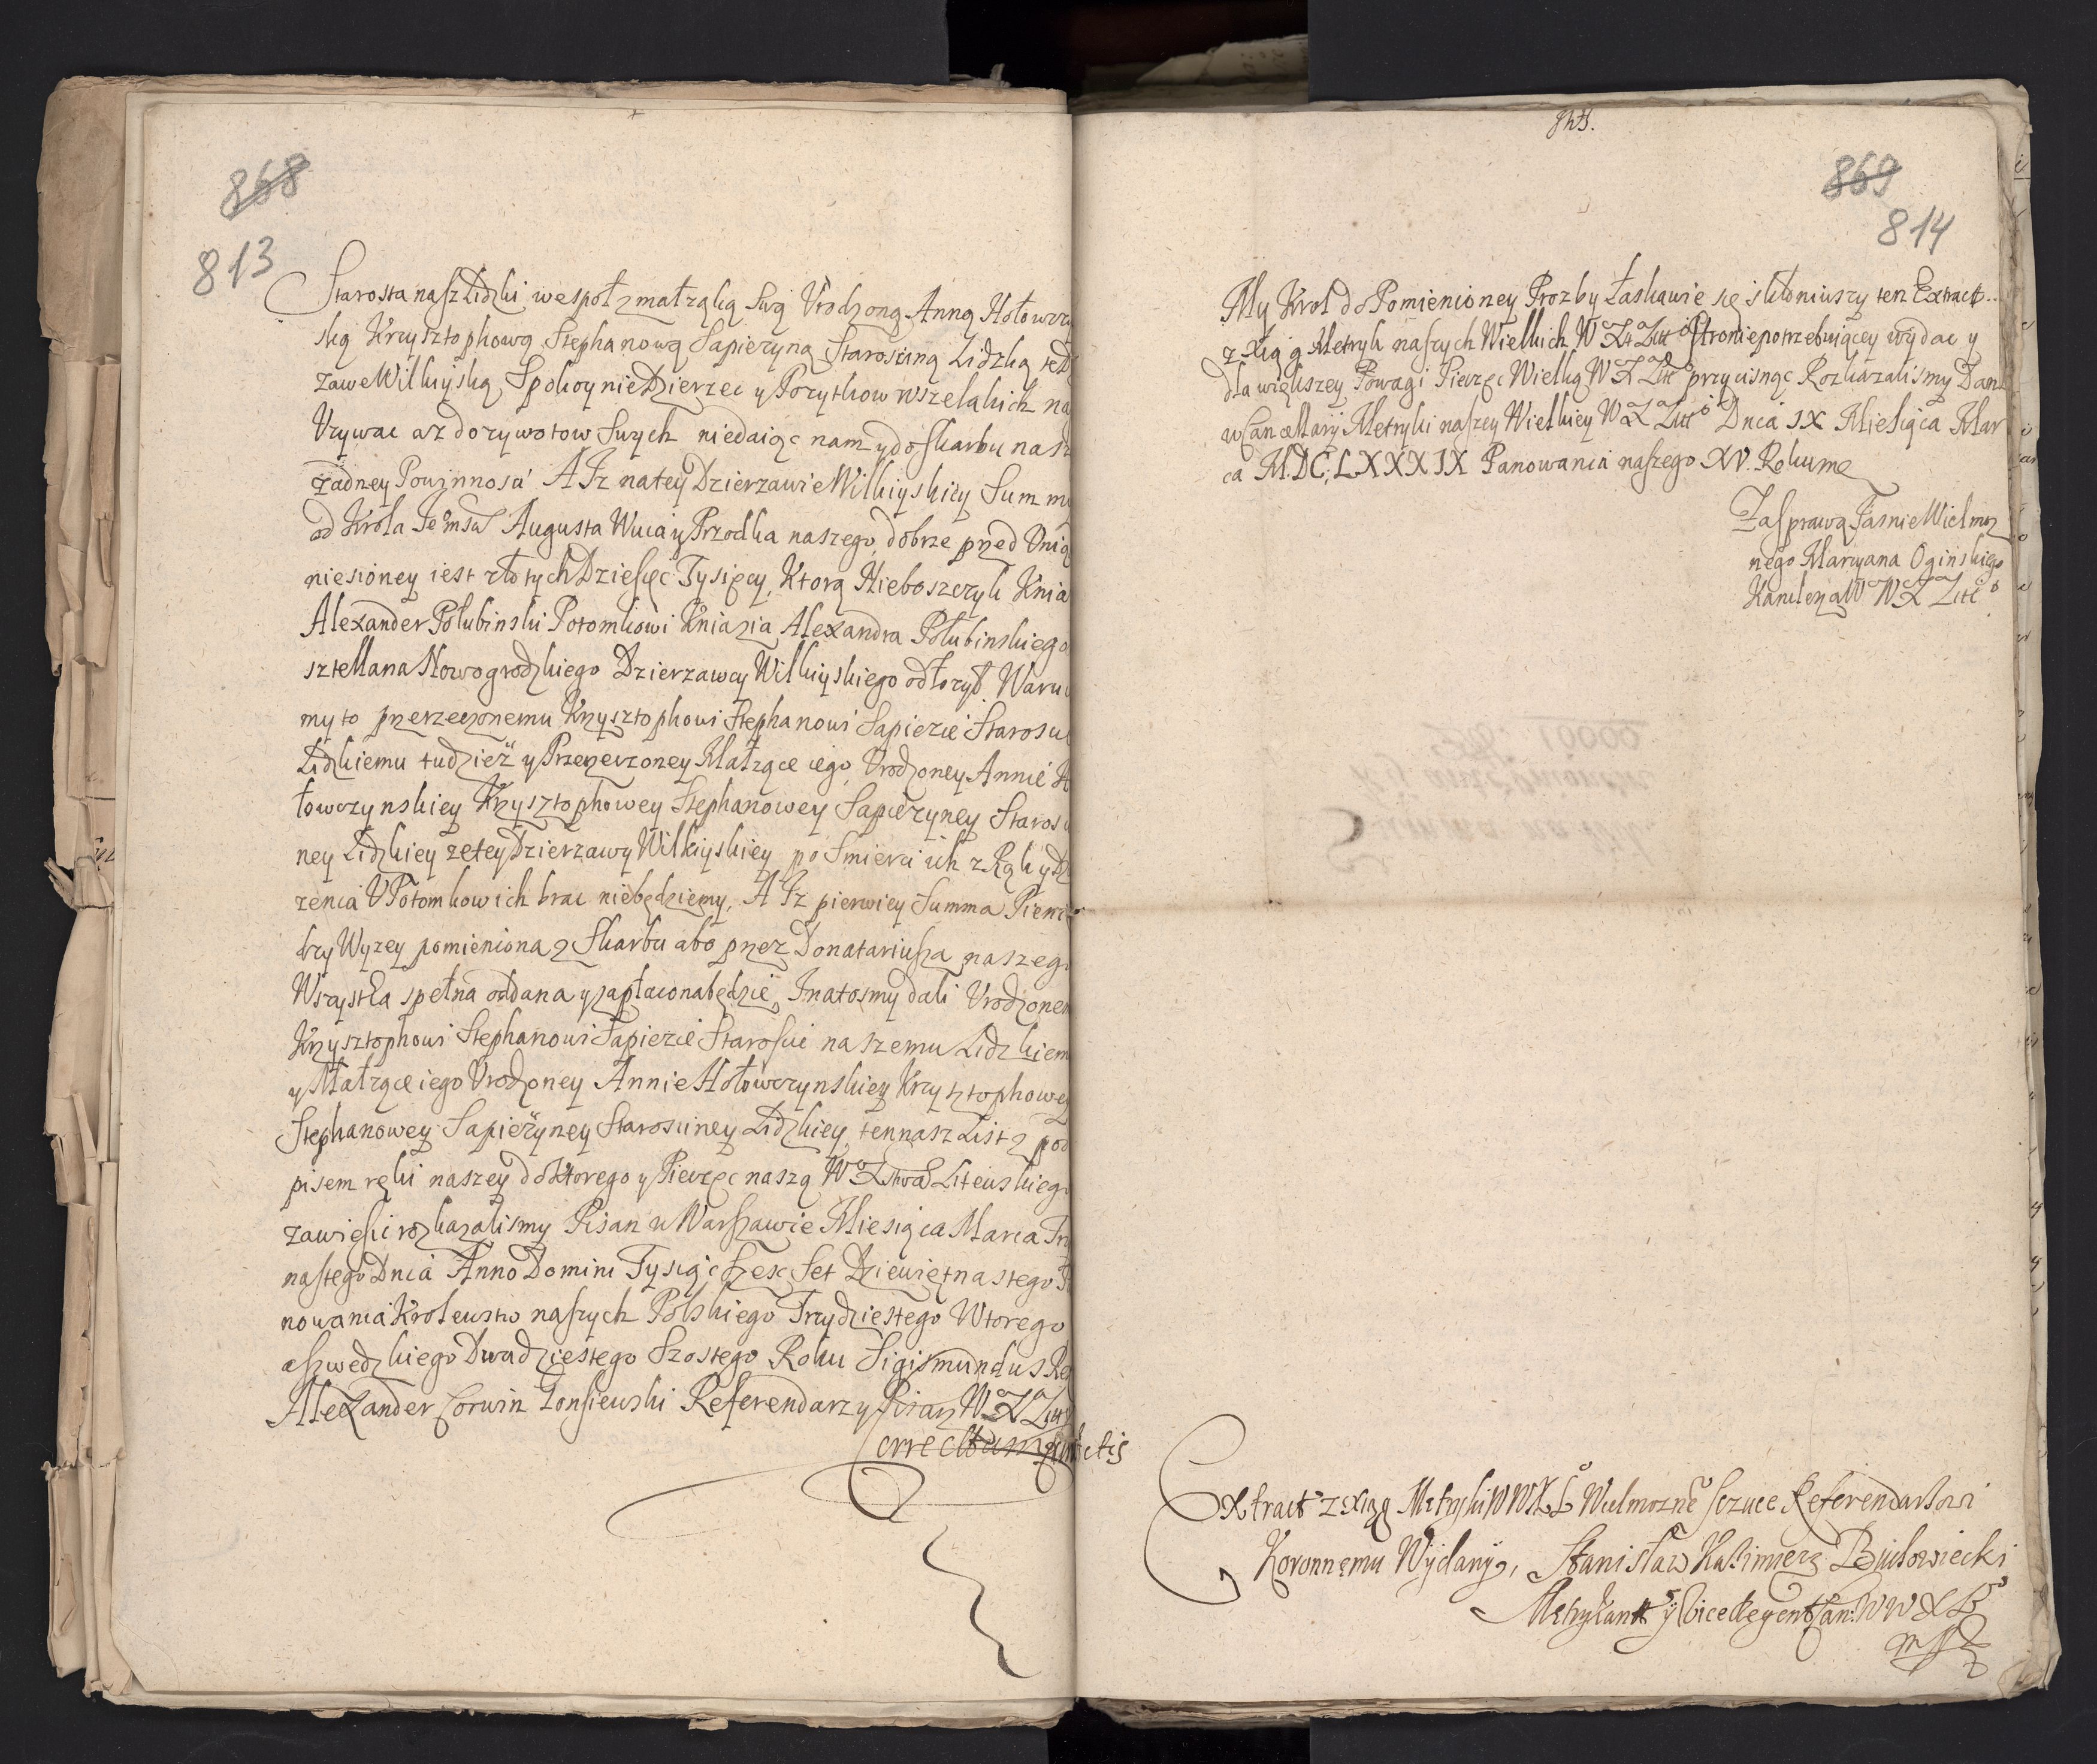 868
813
Starosta nasz Lidzki wespoł z małząką Swą Vrodzoną Anną Hołowczy
ską Krzysztophową Stephanową Sapieżyną Starosciną Lidzką
zawe Wilkiyską Spokoynie Dzierzec y Pozytkow wszelakich na
Vzywac az dozywotow Swych niedaiąc nam y do skarbu nasz
żadney Powinnosci A Iż natey Dzierzawie Wilkiyskiey Summ
od Krola Je Msci Augusta Wuia y Przodka naszego dobrze przed Unią
niesioney iest złotych Dziesięc Tysięcy, Ktorą Nieboszczyk Knia
Alexander Połubinski Potomkowi Kniazia Alexandra Połubinskiego
sztellana Nowogrodzkiego Dzierzawcy Wilkiyskiego odłozył Waru
my to przerzeczonemu Krzysztophowi Stephanowi Sapiezie Starosci
Lidzkiemu tudziesz y Przerzeczoney Małzące iego Vrodzoney Annie H
łowczynskiey Krzysztophowey Stephanowey Sapieżyney Starosci
ney Lidzkiey zetey Dzierzawy Wilkiyskiey po Smierci ich z Rąk y
zenia V Potomkow ich brac niebędziemy, A Iż pierwiey Summa Pieni
dzy Wyzey pomieniona z Skarbu abo przez Donatariusza naszego
Wszystka spełna oddana y zapłacona będzie, Inatosmy dali Vrodzonem
Krzysztophowi Stephanowi Sapiezie Staroscie naszemu Lidzkiem
y Małzące iego Vrodzoney Annie Hołowczynskiey Krzysztophowey
Stephanowey Sapieżyney Starosciney Lidzkiey ten nasz List z pod
pisem ręki naszey do Ktorego y Pieczęc naszą W X Lstwa Litewskiego
zawiesic rozkazalismy Pisan w Warszawie Miesiąca Marca Trzy
nastego Dnia Anno Domini Tysiąc Szesc Set Dziewiętnastego
nowania Krolewstw naszych Polskiego Trzydziestego Wtorego
a Szwedzkiego Dwadziestego Szostego Roku Sigismundus Rex
Alexander Corwin Gonsiewski Referendarz y Pisarz W X Litt
Correctum
869
814
My Krol do Pomienioney Prozby Łaskawie się skłoniwszy ten Extract
z Xiąg Metryk naszych Wielkich W X Litt stronie potrzebuiącey wydac y
dla większey Powagi Pieczęc Wielką W X Litt przycisnąc Rozkazalismy Dan
w Cancellaryi Metryki naszey Wielkiey W X Litt Dnia IX Miesiąca Mar
ca M.DC.LXXXIX Panowania naszego XV. Roku
Za sprawą Jasnie Wielmoz
nego Marcyana Oginskiego
Kanclerza W W X Litt
Extract z Xiąg Metryki W W X L Wielmozne Sczuce Referendarzowi
Koronnemu Wydany, Stanisław Kazimierz
Metrykant y Vice Regent Can: W W X L
mp